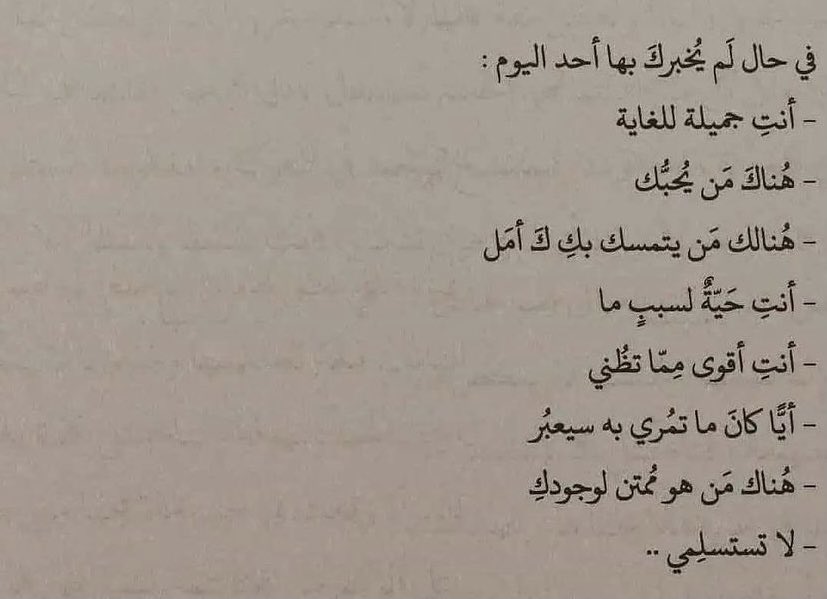 في حال لَم يُخبركَ بها أحد اليوم :
- أنتِ جميلة للغاية
- هُناكَ مَن يُحبُّك
- هُنالك مَن يتمسك بكِ كَ أمَل
- أنتِ حَيّةٌ لسببٍ ما
- أنتِ أقوى مِمّا تظُني
- أيًّا كانَ ما تمُري به سيعبُر
- هُناك مَن هو مُمتن لوجودكِ
- لا تستسلِمي ..